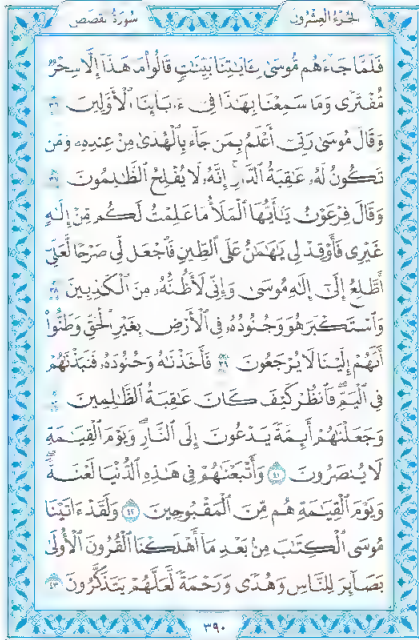 سُورَةُ القَصَصِ
الجُزْءُ العِشْرُونَ
فَلَمَّا جَآءَهُم مُّوسَىٰ بِـَٔايَٰتِنَا بَيِّنَٰتٍ قَالُوا۟ مَا هَٰذَآ إِلَّا سِحْرٌ
مُّفْتَرًى وَمَا سَمِعْنَا بِهَٰذَا فِىٓ ءَابَآئِنَا ٱلْأَوَّلِينَ ٣٦
وَقَالَ مُوسَىٰ رَبِّىٓ أَعْلَمُ بِمَن جَآءَ بِٱلْهُدَىٰ مِنْ عِندِهِۦ وَمَن
تَكُونُ لَهُۥ عَٰقِبَةُ ٱلدَّارِ إِنَّهُۥ لَا يُفْلِحُ ٱلظَّٰلِمُونَ ٣٧
وَقَالَ فِرْعَوْنُ يَٰٓأَيُّهَا ٱلْمَلَأُ مَا عَلِمْتُ لَكُم مِّنْ إِلَٰهٍ
غَيْرِى فَأَوْقِدْ لِى يَٰهَٰمَٰنُ عَلَى ٱلطِّينِ فَٱجْعَل لِّى صَرْحًا لَّعَلِّىٓ
أَطَّلِعُ إِلَىٰٓ إِلَٰهِ مُوسَىٰ وَإِنِّى لَأَظُنُّهُۥ مِنَ ٱلْكَٰذِبِينَ ٣٨
وَٱسْتَكْبَرَ هُوَ وَجُنُودُهُۥ فِى ٱلْأَرْضِ بِغَيْرِ ٱلْحَقِّ وَظَنُّوٓا۟
أَنَّهُمْ إِلَيْنَا لَا يُرْجَعُونَ ٣٩ فَأَخَذْنَٰهُ وَجُنُودَهُۥ فَنَبَذْنَٰهُمْ
فِى ٱلْيَمِّ فَٱنظُرْ كَيْفَ كَانَ عَٰقِبَةُ ٱلظَّٰلِمِينَ ٤٠
وَجَعَلْنَٰهُمْ أَئِمَّةً يَدْعُونَ إِلَى ٱلنَّارِ وَيَوْمَ ٱلْقِيَٰمَةِ
لَا يُنصَرُونَ ٤١ وَأَتْبَعْنَٰهُمْ فِى هَٰذِهِ ٱلدُّنْيَا لَعْنَةً
وَيَوْمَ ٱلْقِيَٰمَةِ هُم مِّنَ ٱلْمَقْبُوحِينَ ٤٢ وَلَقَدْ ءَاتَيْنَا
مُوسَى ٱلْكِتَٰبَ مِنۢ بَعْدِ مَآ أَهْلَكْنَا ٱلْقُرُونَ ٱلْأُولَىٰ
بَصَآئِرَ لِلنَّاسِ وَهُدًى وَرَحْمَةً لَّعَلَّهُمْ يَتَذَكَّرُونَ ٤٣
٣٩٠